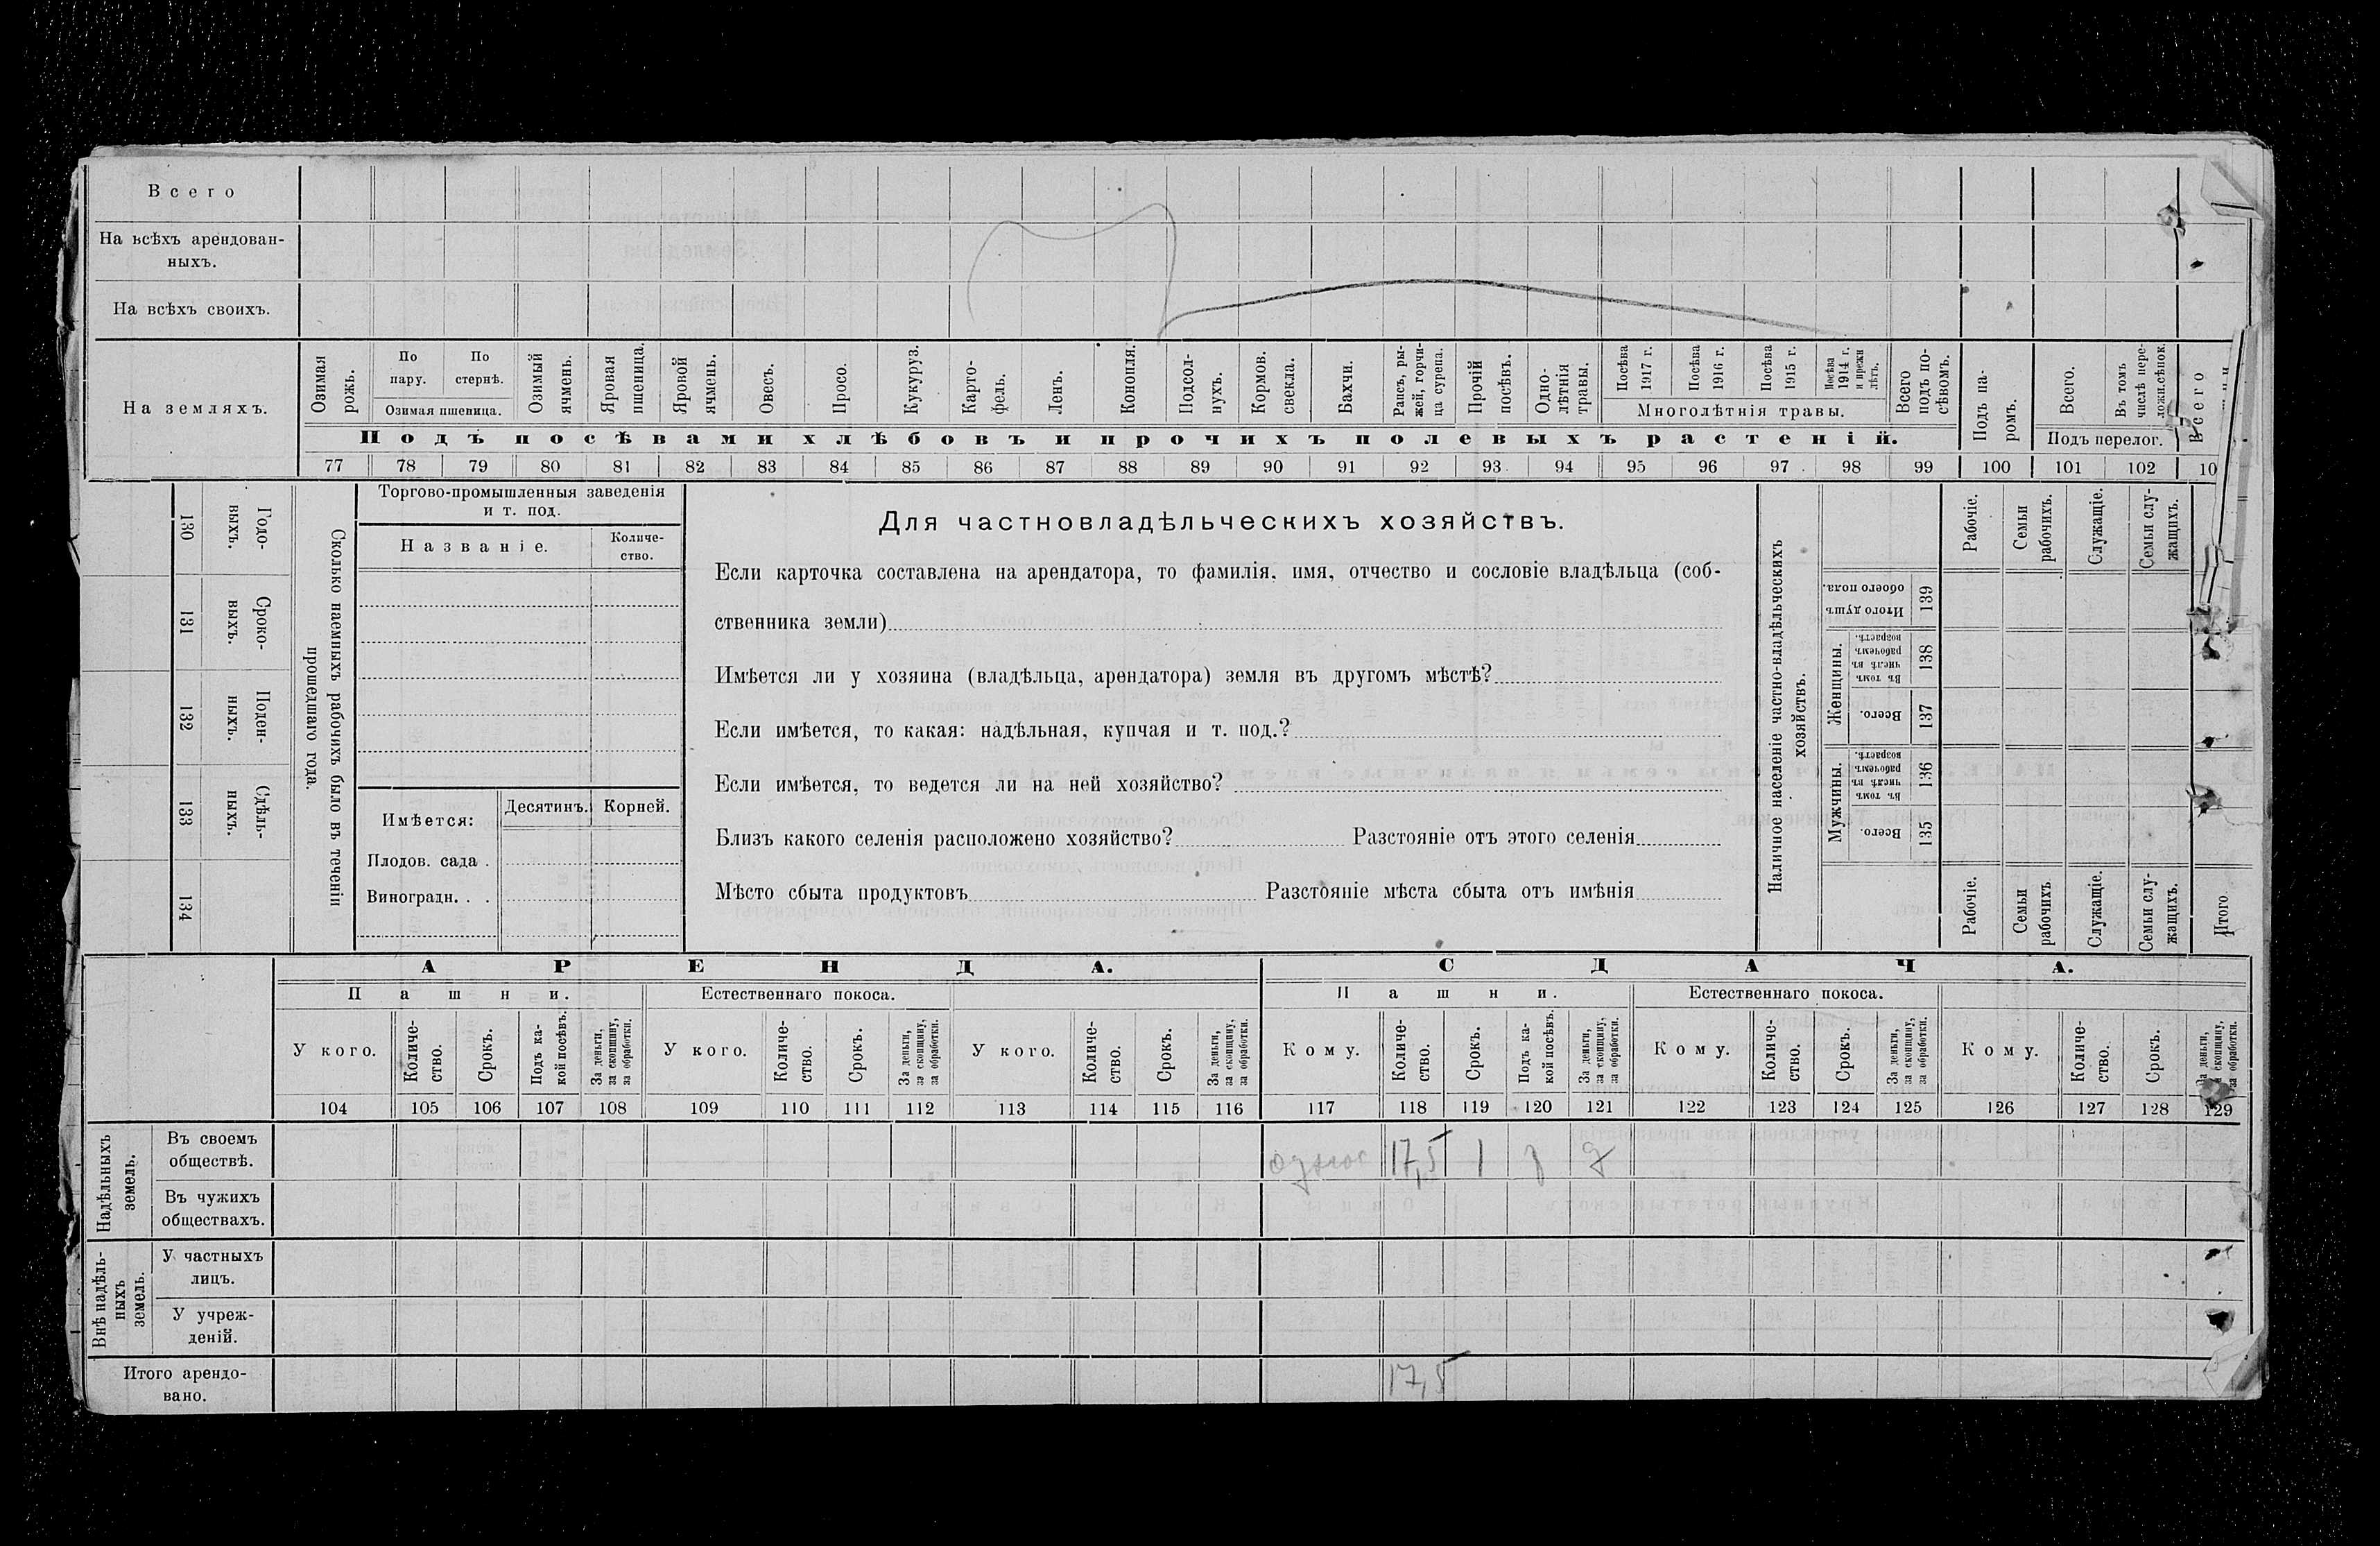 Всего
На всѣхъ арендован-
ныхъ.
На всѣхъ своихъ.
На земляхъ.
Озимая рожь.
По пару.
По стернѣ.
Озимая пшеница.
Озимый ячмень.
Яровая пшеница.
Яровой ячмень.
Овесъ.
Просо.
Кукуруз.
Карто-
фель.
Ленъ.
Конопля.
Подсол-
нухъ.
Кормов. свекла.
Бахчи.
Рапсъ, ры-
жей, горчи-
ца сурепа.
Прочій посѣвъ.
Одно-
лѣтнія травы.
Посѣва 1917 г.
Посѣва 1916 г.
Посѣва 1915 г.
Посѣва 1914 г. и прежн лѣтъ.
Многолѣтнія травы.
Всего подъ по-
сѣвомъ.
Подъ посѣвами хлѣбовъ и прочихъ полевыхъ растеній.
Подъ па-
ромъ.
Всего.
Въ томъ числѣ пере-
ложн.сѣнок.
Подъ перелог.
Всего
77 78 79 80 81 82 83 84 85 86 87 88 89 90 91 92 93 94 95 96 97 98 99 100 101 102 10
130 Годо-
выхъ.
131 Сроко-
выхъ.
132 Поден-
ныхъ.
133 Сдѣль-
ныхъ.
134
Сколько наемныхъ рабочихъ было въ теченіи
прошедшаго года.
Торгово-промышленныя заведенія
и т. под.
Названіе.
Количе-
ство.
Имѣется:
Десятинъ.
Корней.
Плодов. сада .
Виноградн. . .
Для частновладѣльческихъ хозяйствъ.
Если карточка составлена на арендатора, то фамилія, имя, отчество и сословіе владѣльца (соб-
ственника земли)
Имѣется ли у хозяина (владѣльца, арендатора) земля въ другомъ мѣстѣ?
Если имѣется, то какая: надѣльная, купчая и т. под.?
Если имѣется, то ведется ли на ней хозяйство?
Близъ какого селенія расположено хозяйство? Разстояніе отъ этого селенія
Мѣсто сбыта продуктовъ Разстояніе мѣста сбыта отъ имѣнія
Наличное населеніе частно-владѣльческихъ
хозяйствъ.
Рабочіе.
Семьи рабочихъ.
Служащіе.
Семьи слу-
жащихъ.
Итого душъ обоего пола. 139
Женщины.
Въ томъ числѣ въ рабочемъ возрастѣ. 138
Всего. 137
Мужчины.
Въ томъ числѣ въ рабочемъ возрастѣ. 136
Всего. 135
Рабочіе.
Семьи рабочихъ
Служащіе.
Семьи слу-
жащихъ.
Итого
АРЕНДА.
СДАЧА.
Пашни.
Естественнаго покоса.
Пашни.
Естественнаго покоса.
У кого.
Количе-
ство.
Срокъ.
Подъ ка-
кой посѣвъ.
За деньги, за скопщину, за обработки.
У кого.
Количе-
ство.
Срокъ.
За деньги, за скопщину, за обработки.
У кого.
Количе-
ство.
Срокъ.
За деньги, за скопщину, за обработки.
Кому.
Количе-
ство.
Срокъ.
Подъ ка-
кой посѣвъ.
За деньги, за скопщину, за обработки.
Кому.
Количе-
ство.
Срокъ.
За деньги, за скопщину, за обработки.
Кому.
Количе-
ство.
Срокъ.
За деньги, за скопщину, за обработки.
104 105 106 107 108 109 110 111 112 113 114 115 116 117 118 119 120 121 122 123 124 125 126 127 128 129
Надѣльныхъ земель.
Въ своемъ
обществѣ.
17,5 1
Въ чужихъ
обществахъ.
Внѣ надѣль-
ныхъ земель.
У частныхъ
лицъ.
У учреж-
деній.
Итого арендо-
вано.
17,5